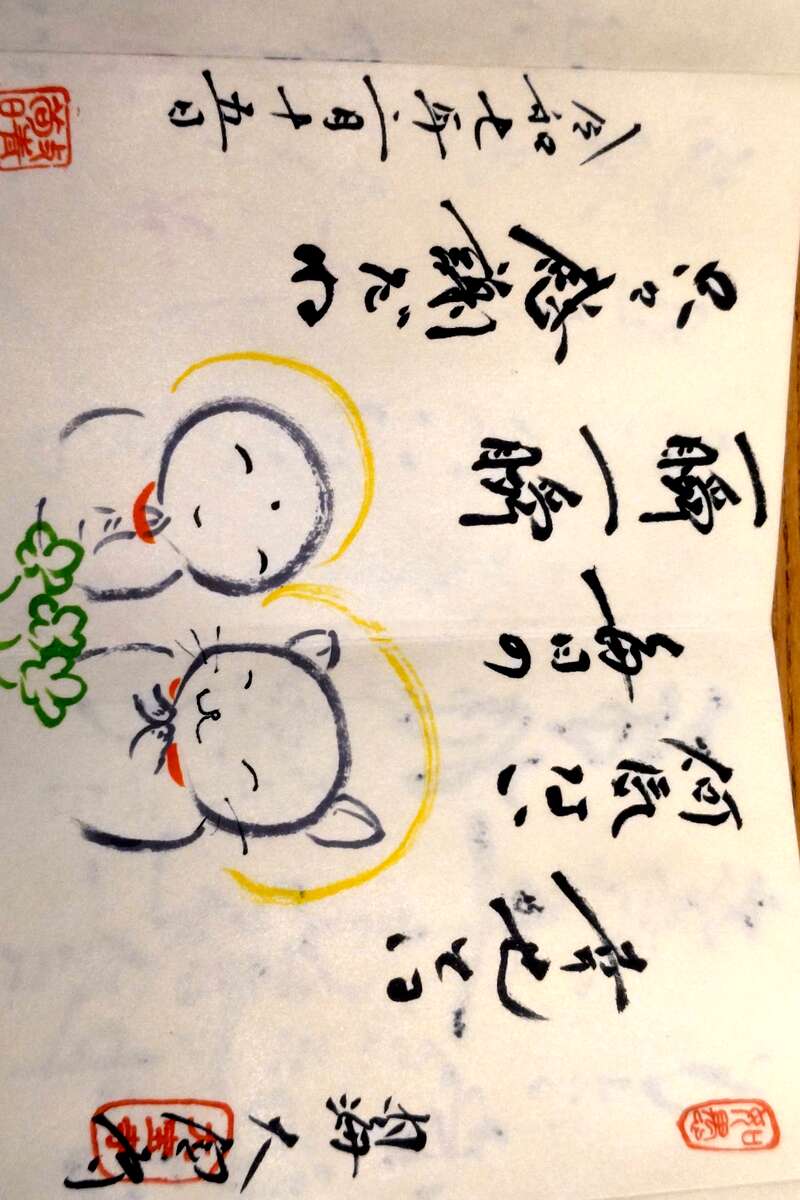 幸せとは
何気ない
毎日の
一瞬一瞬
只々感謝だね
令和七年一月十五日